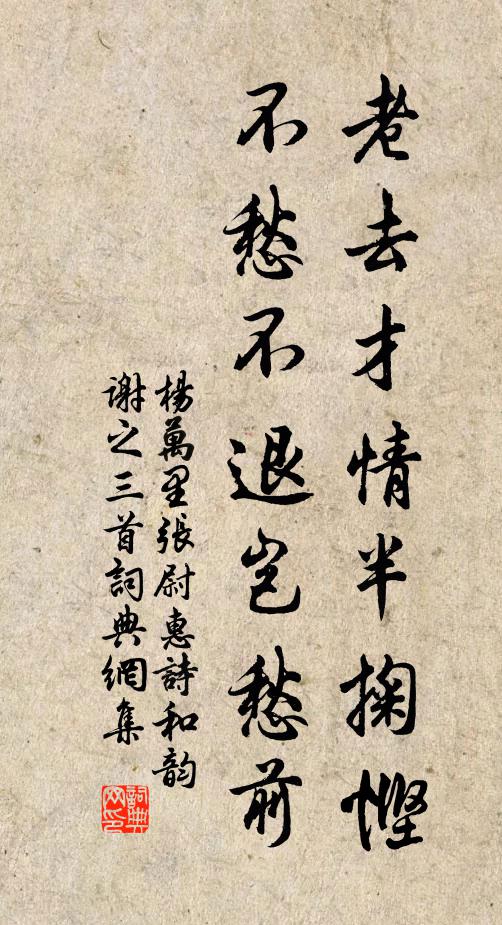 老去才情半掬慳
不愁不退豈愁前
楊萬里張尉惠詩和韵
謝之三首詞典網集
詞典网印